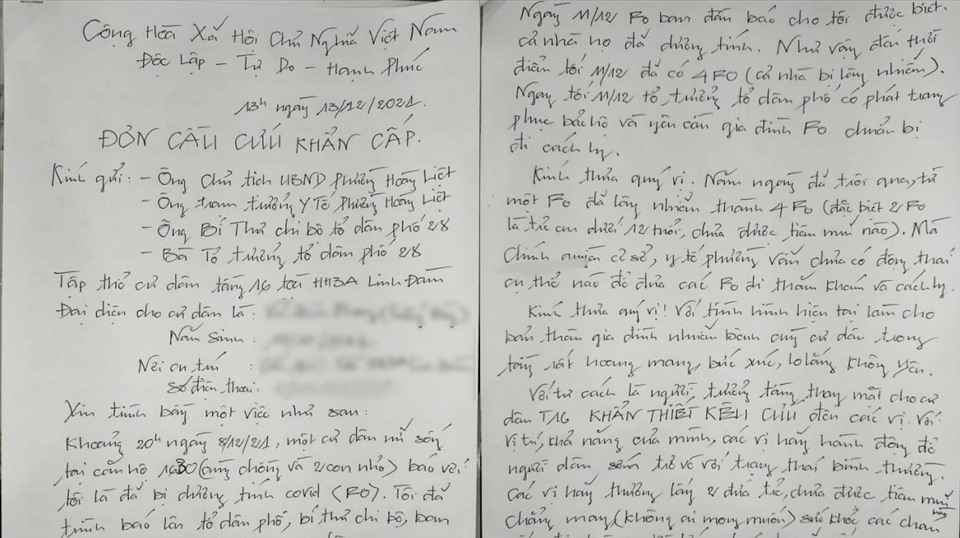 Cộng Hòa Xã Hội Chủ Nghĩa Việt Nam
Độc Lập - Tự Do - Hạnh Phúc
13h ngày 13/12/2021.
ĐƠN CẦU CỨU KHẨN CẤP.
Kính gửi: - Ông Chủ tịch UBND phường Hoàng Liệt
- Ông trạm trưởng Y Tế phường Hoàng Liệt
- Ông Bí Thư chi bộ tổ dân phố 28
- Bà Tổ trưởng tổ dân phố 28
Tập thể cư dân tầng 16 tòa HH3A Linh Đàm
Đại diện cho cư dân là:
Năm sinh:
Nơi cư trú
số điện thoại:
Xin trình bày một việc như sau:
Khoảng 20h ngày 8/12/21, một cư dân nữ sống
tại căn hộ 1630 (cùng chồng và 2 con nhỏ) báo với
tôi là đã bị dương tính covid (F0). Tôi đã
trình báo lên tổ dân phố, bí thư chi bộ, ban
Ngày 11/12 F0 ban đầu báo cho tôi được biết.
cả nhà họ đã dương tính. Như vậy đến thời
điểm tối 11/12 đã có 4 F0 (cả nhà bị lây nhiễm).
Ngay tối 11/12 tổ trưởng tổ dân phố có phát trang
phục bảo hộ và yêu cầu gia đình F0 chuẩn bị
đi cách ly.
Kính thưa quý vị. Năm ngày đã trôi qua, từ
một F0 đã lây nhiễm thành 4 F0 (đặc biệt 2 F0
là trẻ em dưới 12 tuổi, chưa được tiêm mũi nào). Mà
Chính quyền cơ sở, y tế phường vẫn chưa có động thái
cụ thể nào để đưa các F0 đi thăm khám và cách ly.
Kính thưa quý vị! Với tình hình hiện tại làm cho
bản thân gia đình nhiễm bệnh cùng cư dân trong
tầng rất hoang mang, bức xúc, lo lắng không yên.
Với tư cách là người trưởng tầng thay mặt cho cư
dân T16 KHẨN THIẾT KÊU CỨU đến các vị. Với
vị trí, khả năng của mình, các vị hãy hành động để
người dân sớm trở về với trạng thái bình thường.
Các vị hãy thương lấy 2 đứa trẻ, chưa được tiêm mũi nào
chẳng may (không ai mong muốn) sức khỏe các cháu